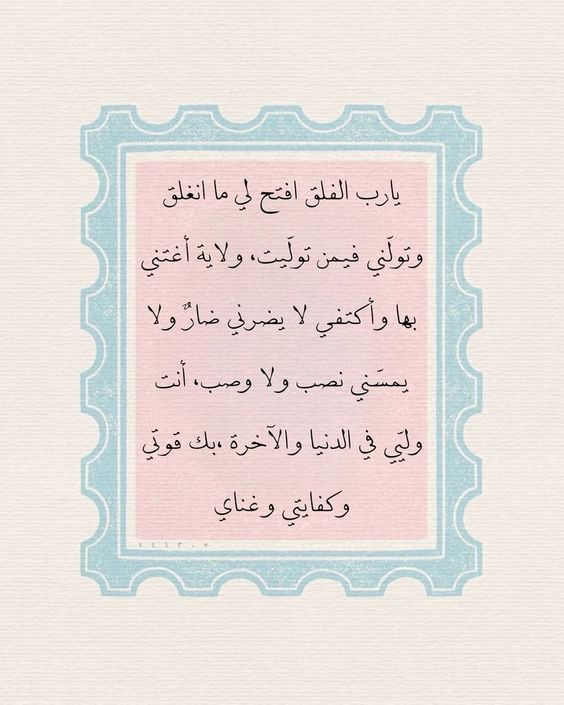 يارب الفلق افتح لي ما انغلق
وتولّني فيمن تولّيت، ولاية أغتني
بها وأكتفي لا يضرني ضارٌ ولا
يمسّني نصب ولا وصب، أنت
وليّي في الدنيا والآخرة ،بك قوتي
وكفايتي وغناي